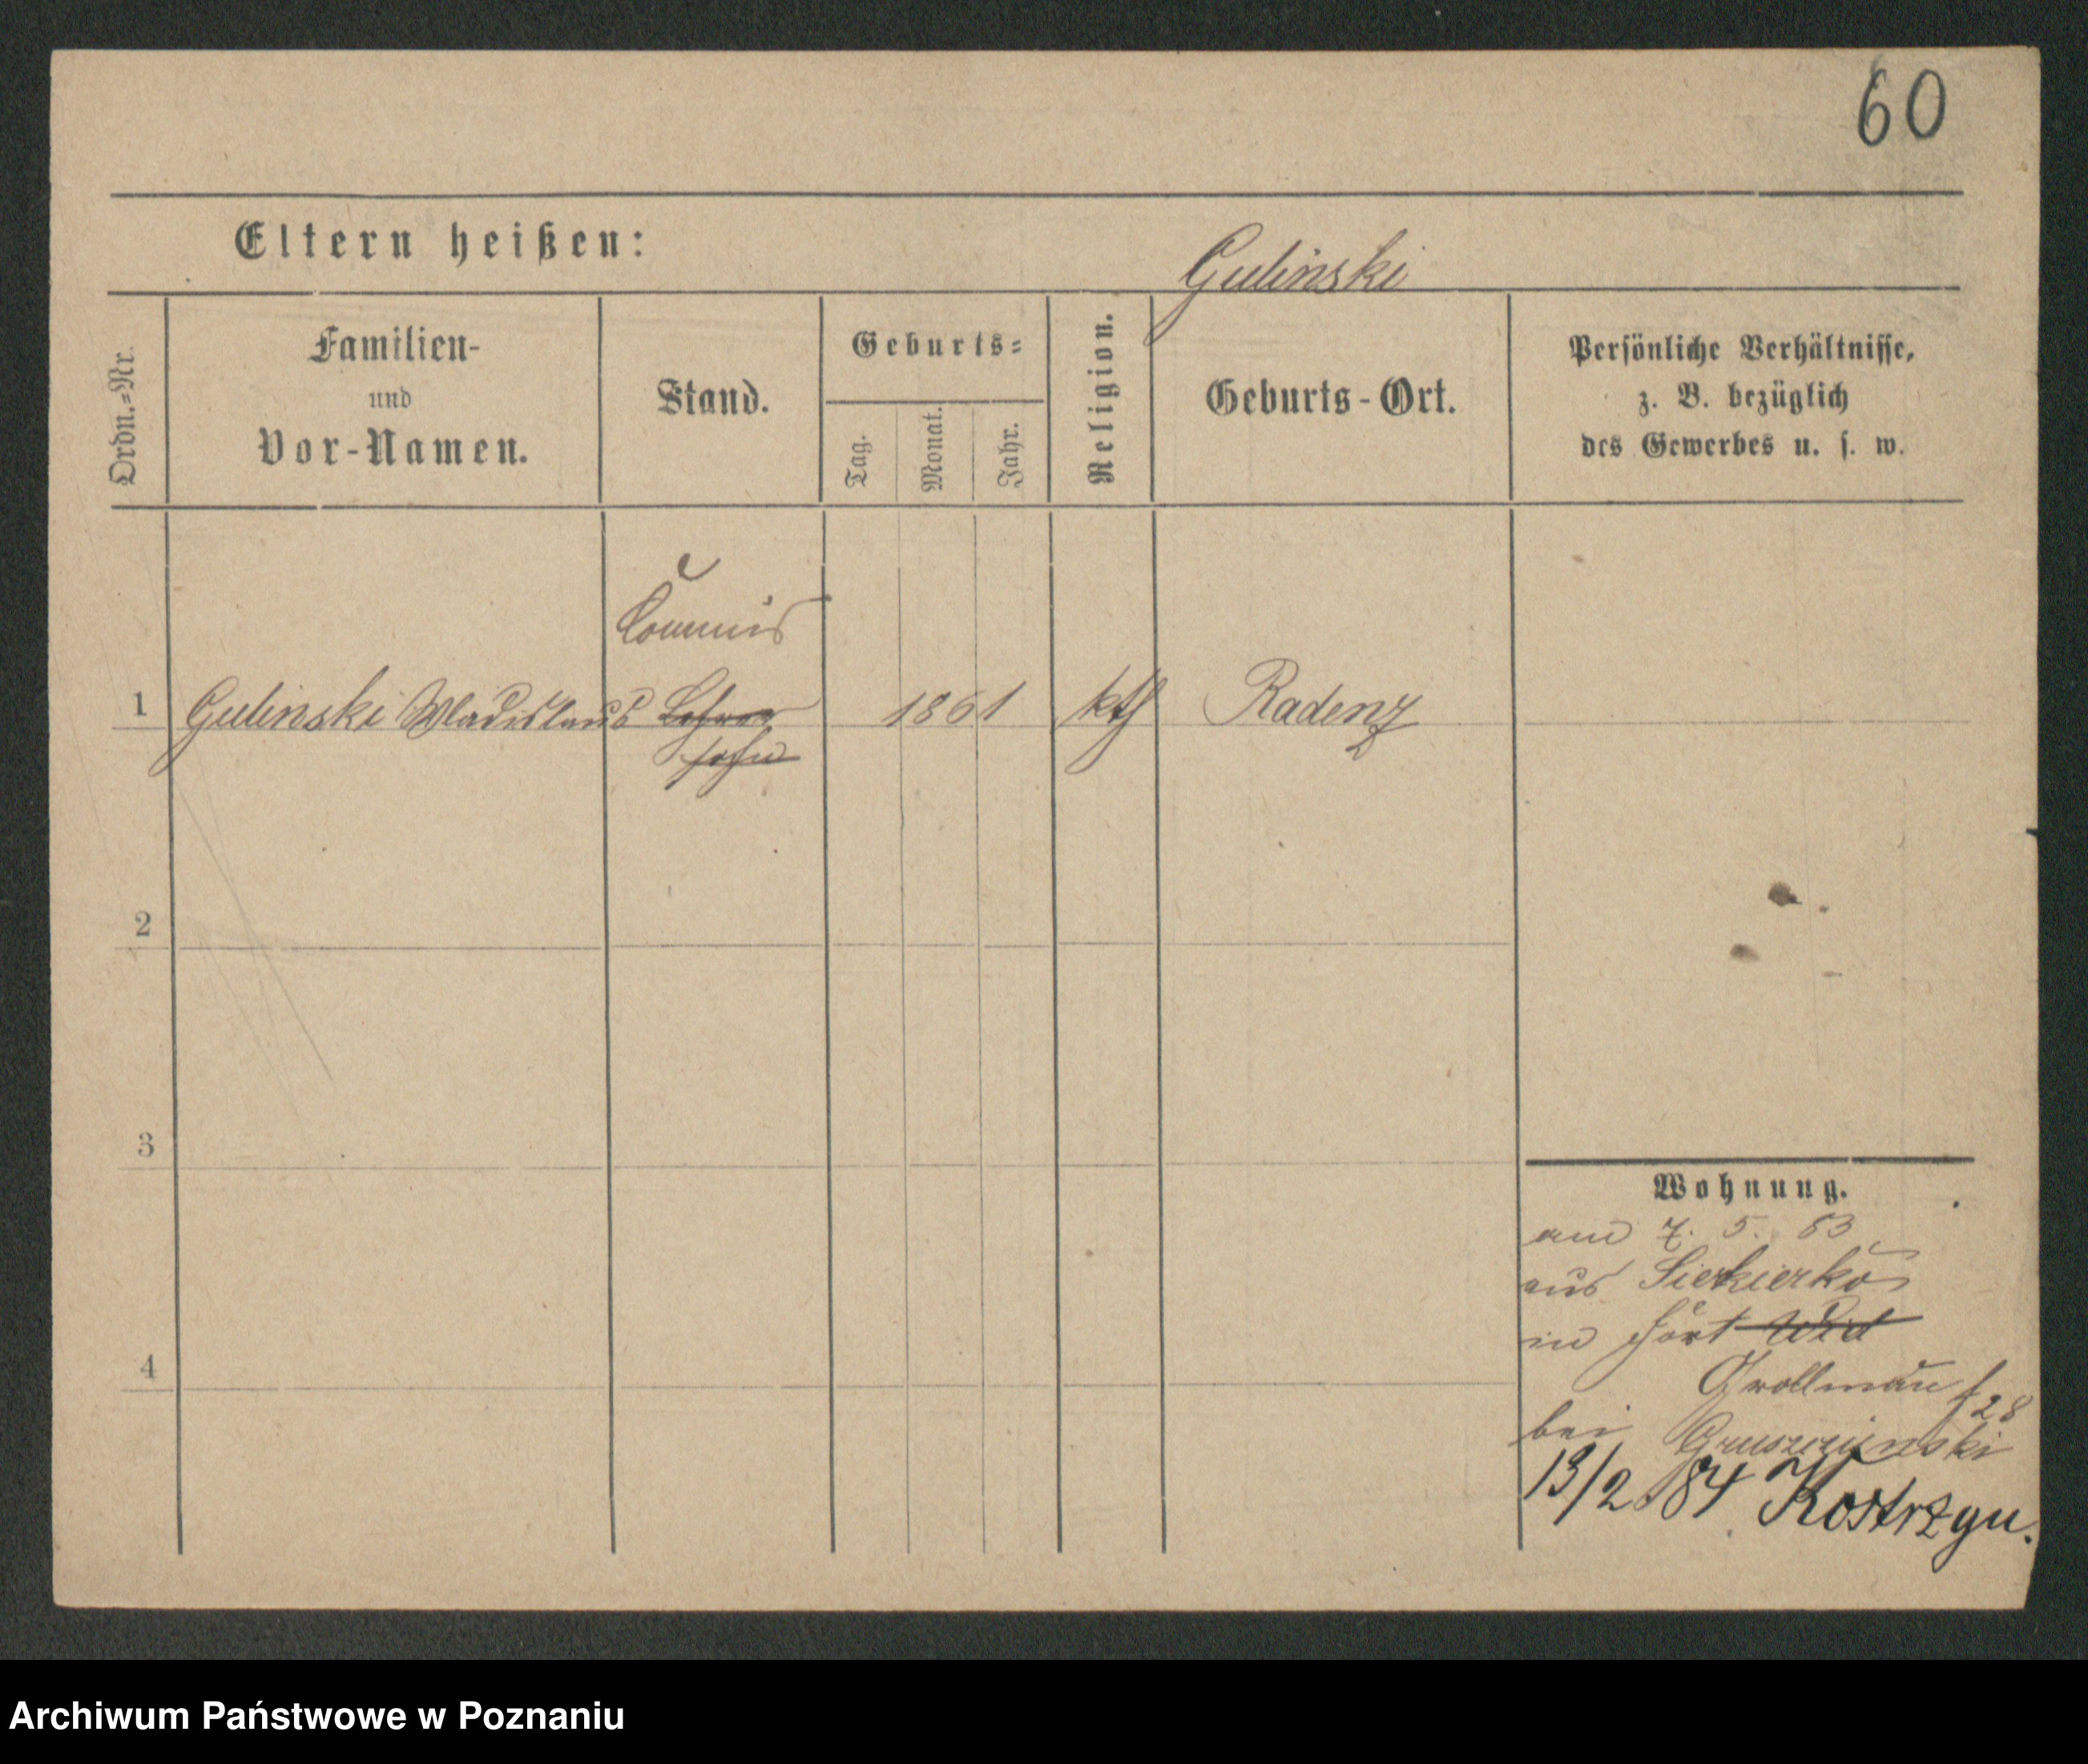 60
Eltern heißen:
Gulinski
Ordn.=Nr.
Familien-
und
Vor-Namen.
Stand.
Geburts=
Tag.
Monat.
Jahr.
Religion.
Geburts-Ort.
Persönliche Verhältnisse,
z. B. bezüglich
des Gewerbes u. s. w.
Commis
1 Gulinski Wladislaus 1861 kth Radenz
sohn
2
3
4
Wohnung.
am 7. 5. 83
aus Siekierki
in
Grollman f 28
bei Gruszczinski
13/2 84 Kostrzyn.
Archiwum Państwowe w Poznaniu